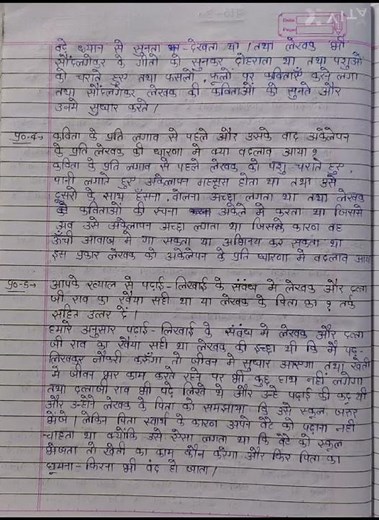 बड़े ध्यान से सुनता व देखता था। तथा लेखक भी
सौंदलगेकर के गीतों को सुनकर दोहराता था तथा पशुओं
को चराते हुए तथा फसलों, फूलों पर कविताएँ करने लगा
तथा सौंदलगेकर लेखक की कविताओं को सुनते और
उनमें सुधार करते।
प्र०-4→ कविता के प्रति लगाव से पहले और उसके बाद अकेलेपन
के प्रति लेखक की धारणा में क्या बदलाव आया?
कविता के प्रति लगाव से पहले लेखक को पशु चराते हुए,
पानी लगाते हुए अकेलापन महसूस होता था तथा उसे
दूसरों के साथ हँसना, बोलना अच्छा लगता था तथा लेखक
की कविताओं की रचना अकेले में करता था जिससे
अब उसे अकेलापन अच्छा लगता था जिसके कारण वह
ऊँची आवाज में गा सकता था या अभिनय कर सकता था
इस प्रकार लेखक को अकेलेपन के प्रति धारणा में बदलाव आया
प्र०-5→ आपके ख्याल से पढ़ाई-लिखाई के संबंध में लेखक और दत्ता
जी राव का रवैया सही था या लेखक के पिता का? तर्क
सहित उत्तर दें।
हमारे अनुसार पढ़ाई-लिखाई के संबंध में लेखक और दत्ता
जी राव का रवैया सही था लेखक की इच्छा थी कि मैं पढ़-
लिखकर नौकरी करूँगा तो जीवन में सुधार आएगा तथा खेती
में जीवन भर काम करते रहने पर भी कुछ हाथ नहीं लगेगा
तथा दत्ताजी राव भी पढ़े लिखे थे और उन्हें पढ़ाई की कद्र थी
और उन्होंने लेखक के पिता को समझाया कि उसे स्कूल जरूर
भेजे। लेकिन पिता स्वार्थ के कारण अपने बेटे को पढ़ाना नहीं
चाहता था क्योंकि उसे ऐसा लगता था कि बेटे को स्कूल
भेजता तो खेती का काम कौन करेगा और फिर पिता का
घूमना-फिरना भी बंद हो जाता।